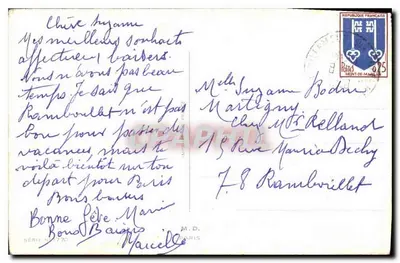 Chère Suzanne
Mes meilleurs souhaits
affectueux baisers.
Nous n'avons pas beau
temps. Je sais que
Rambouillet n'est pas
bon pour passer des
vacances, mais te
voilà bientôt un ton
départ pour Paris
Bons baisers
Bonne fête Marie
Bons Baisers
Marcelle
REPUBLIQUE FRANÇAISE
0,25
MONT-DE-MARSAN
Melle Suzanne Bodin
Martigny
Chez Mr Relland
15 Rue Maurice Dechy
78 Rambouillet
M.D.
PARIS